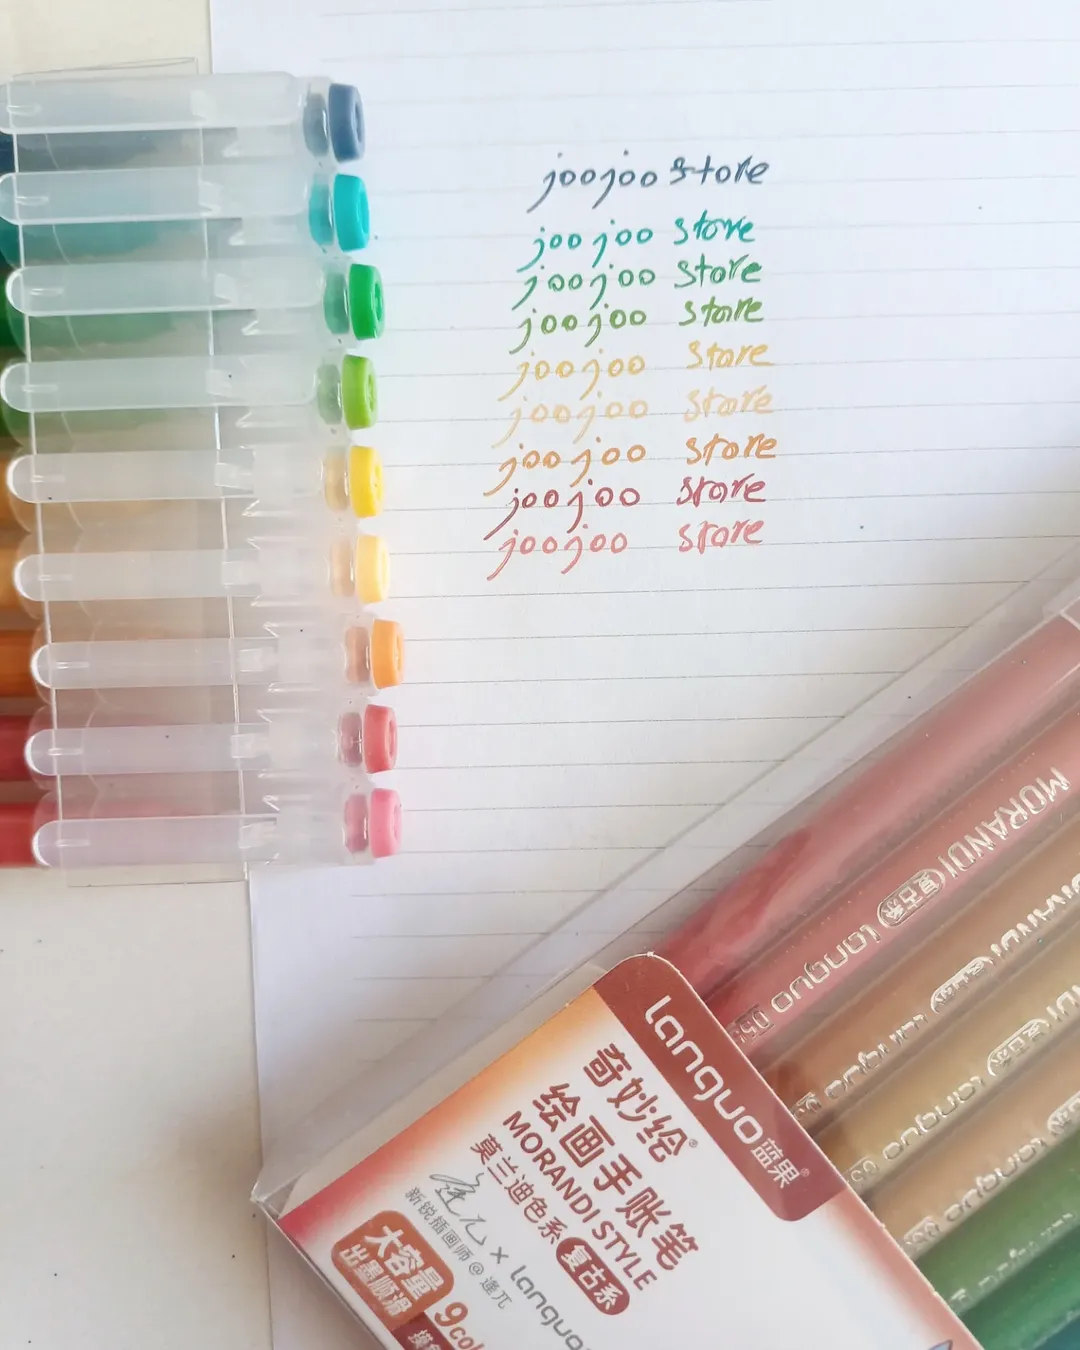 joojoo store
joojoo store
joojoo store
joojoo store
joojoo store
joojoo store
joojoo store
joojoo store
joojoo store
MORANDI 复古系 languo 0.5
languo
复古系 languo
languo
languo 蓝果
奇妙绘®
绘画手账笔
MORANDI STYLE
莫兰迪色系 复古系
× languo
新锐插画师@逢兀
大容量
出墨顺滑
9col